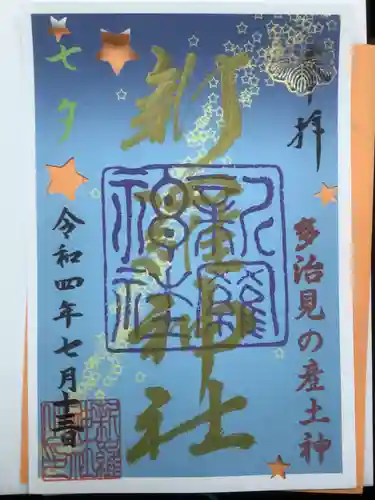 奉拝
多治見の産土神
新羅神社
七夕
令和四年七月十三日
新羅神社